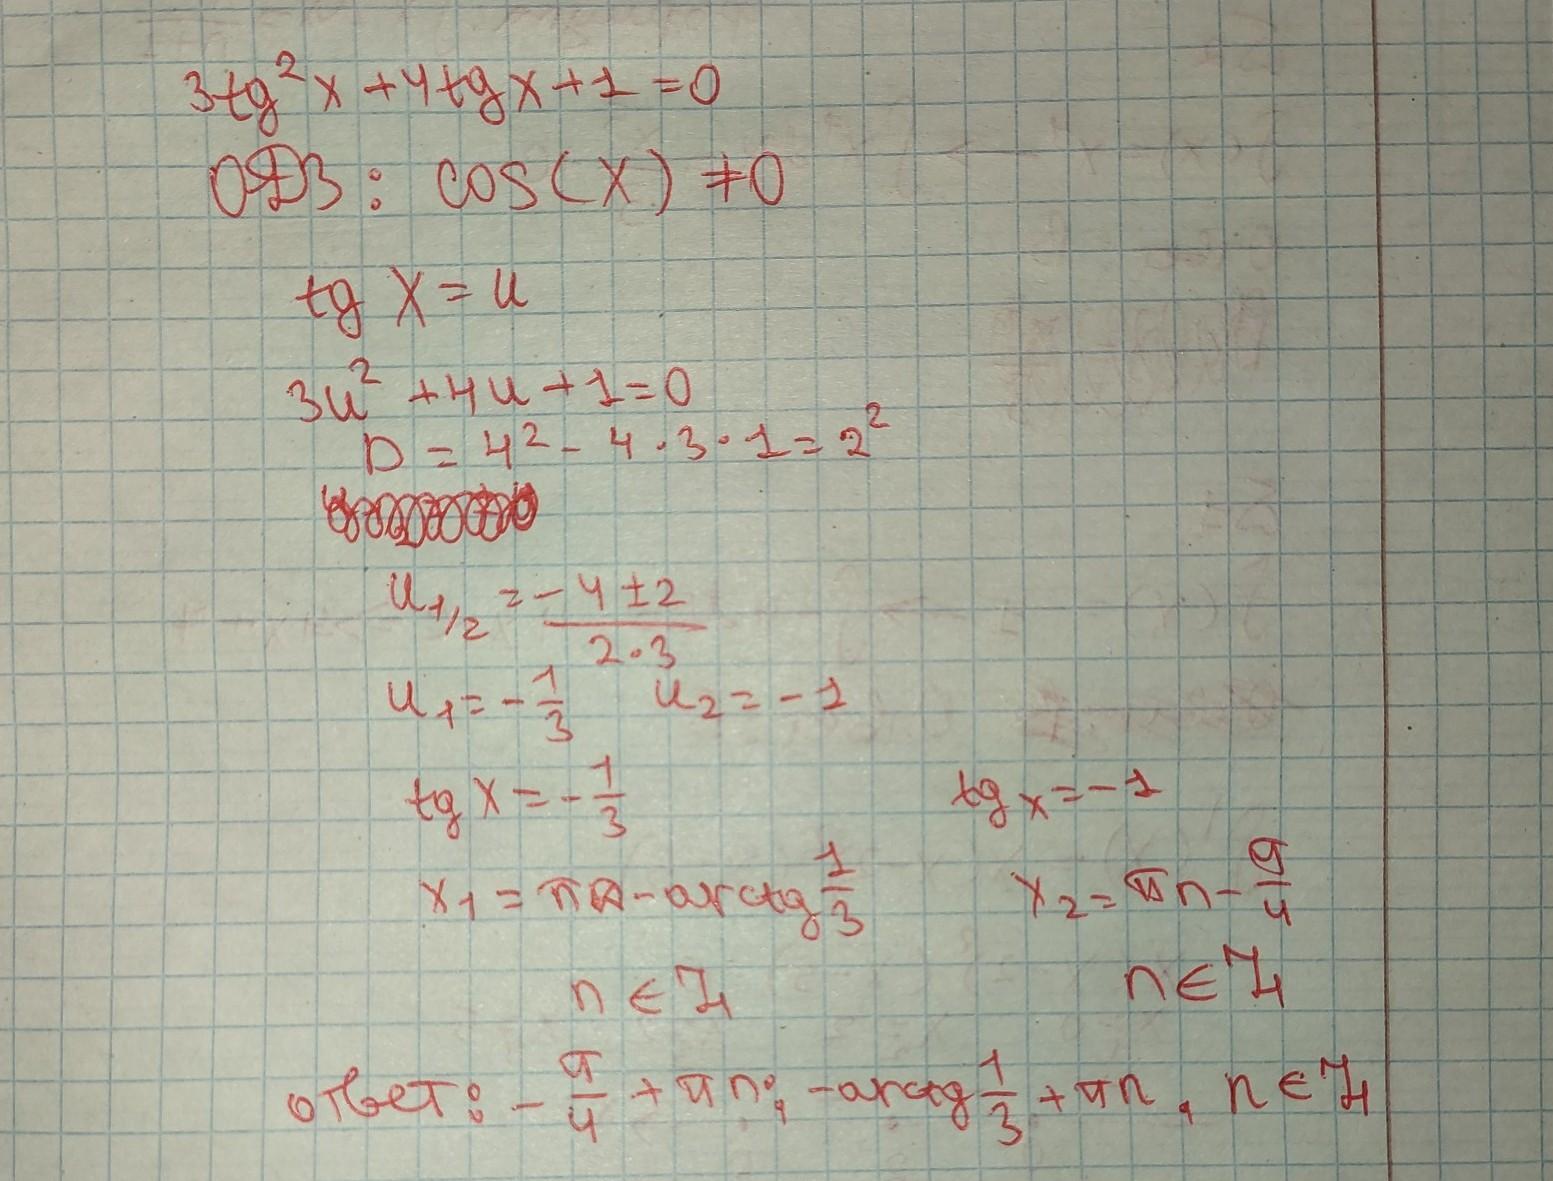 3tg²x + 4tgx + 1 = 0
ОДЗ: cos(x) ≠ 0
tg x = u
3u² + 4u + 1 = 0
D = 4² - 4·3·1 = 2²
u₁/₂ = (-4 ± 2)/(2·3)
u₁ = -1/3 u₂ = -1
tg x = -1/3 tg x = -1
x₁ = πn - arctg 1/3 x₂ = πn - π/4
n ∈ Z n ∈ Z
ответ: -π/4 + πn; -arctg 1/3 + πn, n ∈ Z